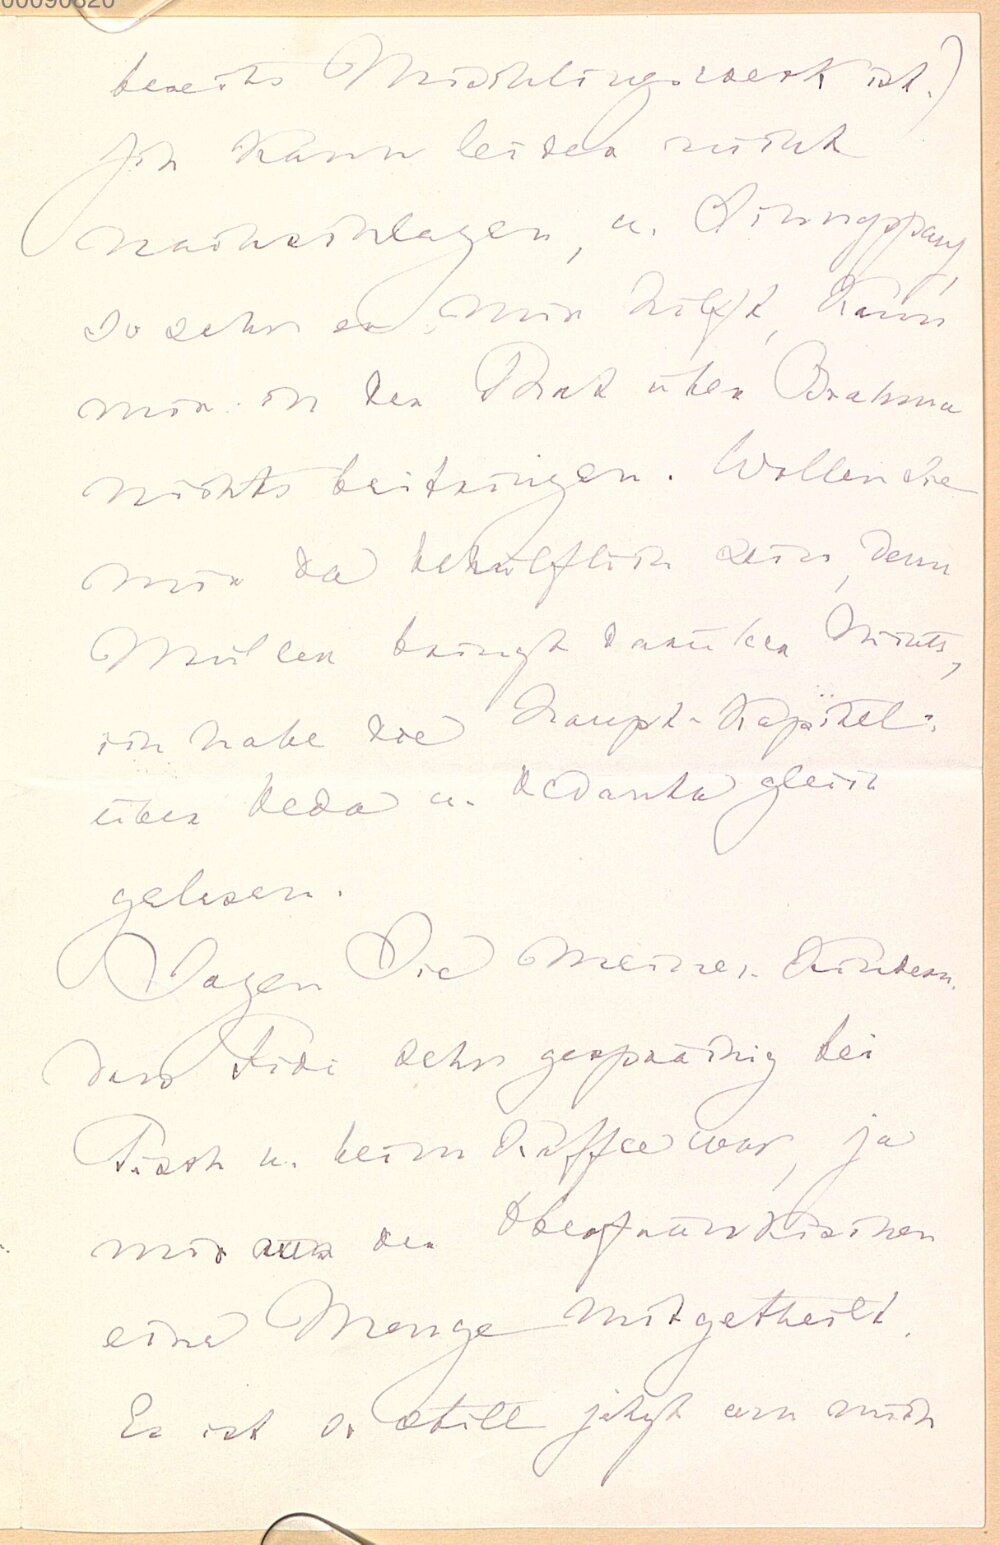 00090820
bereits Mischlingswerk ist.)
Ich kann leider nicht
nachschlagen, u.
so sehr er mir hilft, kann
mir in der That über Brahma
nichts beibringen. Wollen Sie
mir da behülflich sein, denn
Müller bringt darüber Nichts,
ich habe die Haupt-Kapitel
über Veda u. Vedanta gleich
gelesen.
Sagen Sie meinen Kindern
dass Fidi sehr gesprächig bei
Tisch u. beim Kaffee war, ja
mir aus der
eine Menge mitgetheilt.
Es ist so still jetzt um mich